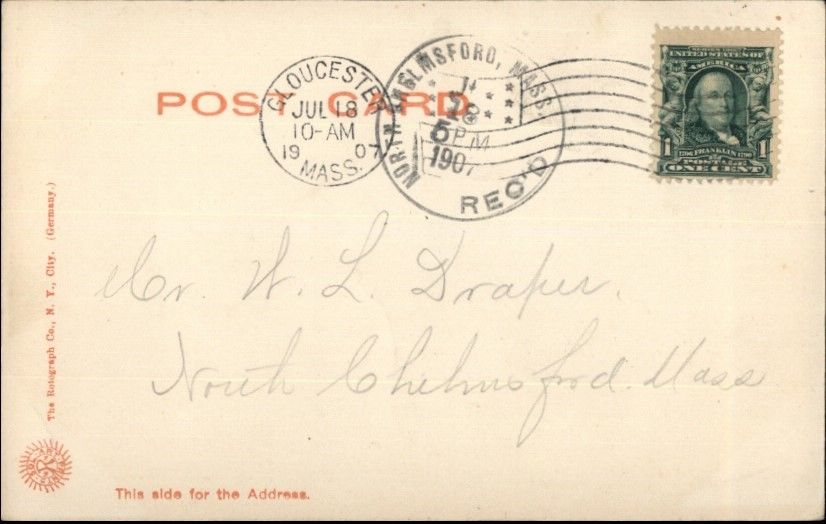 POST CARD
GLOUCESTER
JUL 18
10-AM
19 07
MASS.
NORTH CHELMSFORD, MASS.
5 PM
1907
REC'D
UNITED STATES OF
AMERICA
1 1706 FRANKLIN 1790 1
POSTAGE
ONE CENT
Mr. W. L. Draper.
North Chelmsford. Mass
The Rotograph Co., N. Y., City. (Germany.)
This side for the Address.